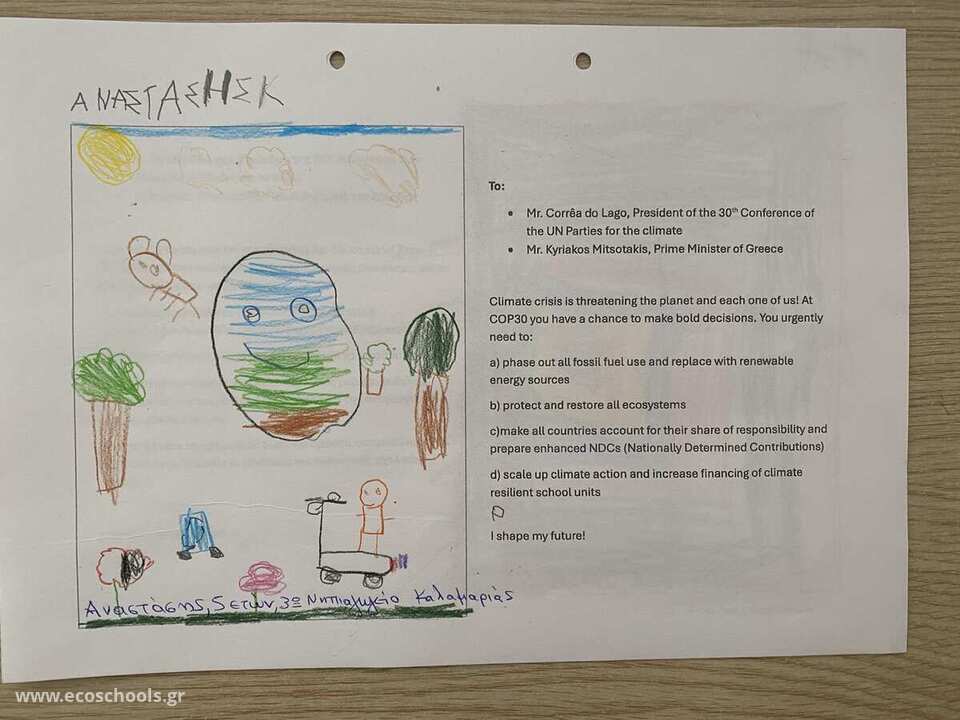 ΑΝΑΣΤΑΣΗΣ Κ
To:
• Mr. Corrêa do Lago, President of the 30th Conference of
the UN Parties for the climate
• Mr. Kyriakos Mitsotakis, Prime Minister of Greece
Climate crisis is threatening the planet and each one of us! At
COP30 you have a chance to make bold decisions. You urgently
need to:
a) phase out all fossil fuel use and replace with renewable
energy sources
b) protect and restore all ecosystems
c)make all countries account for their share of responsibility and
prepare enhanced NDCs (Nationally Determined Contributions)
d) scale up climate action and increase financing of climate
resilient school units
I shape my future!
Αναστάσης, 5 ετών, 3ο Νηπιαγωγείο Καλαμαριάς
www.ecoschools.gr